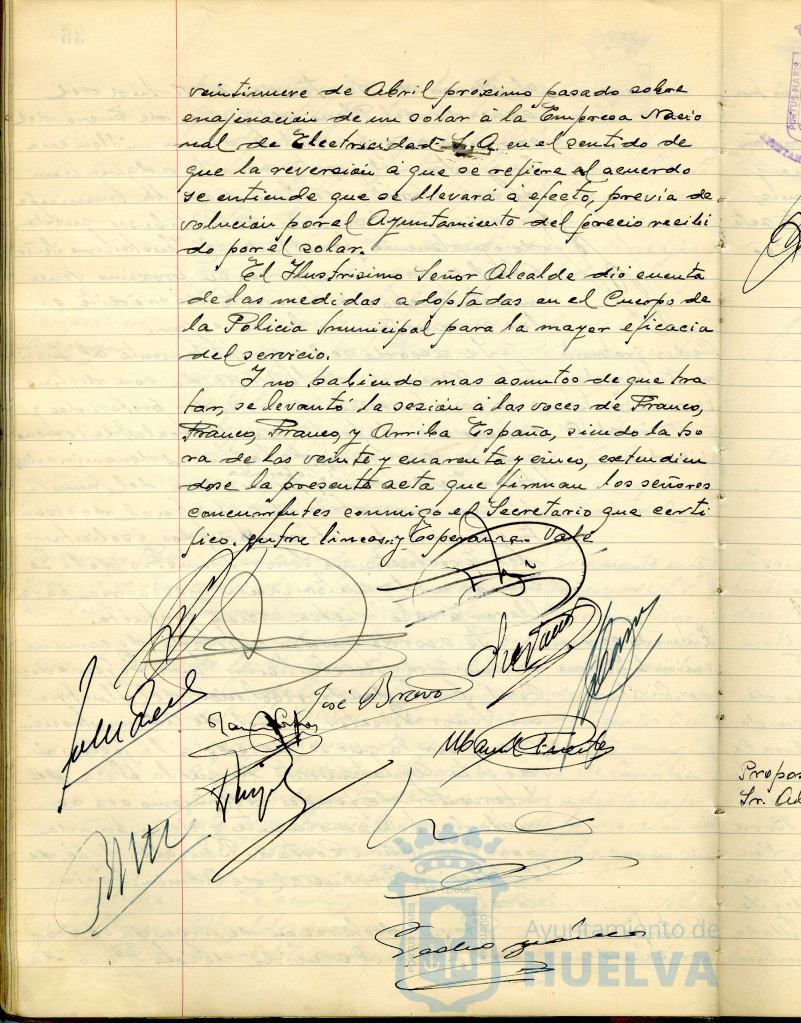 veintinueve de Abril próximo pasado sobre
enajenación de un solar á la Empresa Nacio
nal de Electricidad S.A. en el sentido de
que la reversión á que se refiere el acuerdo
se entiende que se llevará á efecto, previa de
volución por el Ayuntamiento del precio recibi
do por el solar.
El Ilustrisimo Señor Alcalde dió cuenta
de las medidas adoptadas en el Cuerpo de
la Policia municipal para la mayor eficacia
del servicio.
Y no habiendo mas asuntos de que tra
tar, se levantó la sesión á las voces de Franco,
Franco, Franco, y Arriba España, siendo la ho
ra de las veinte y cuarenta y cinco, extendien
dose la presente acta que firman los señores
concurrentes conmigo el Secretario que certi
fico. entre lineas: y Esperanza. Vale
José Bravo
Manuel Fuentes
Pedro
Propos
Sr. Ad
Ayuntamiento de
HUELVA